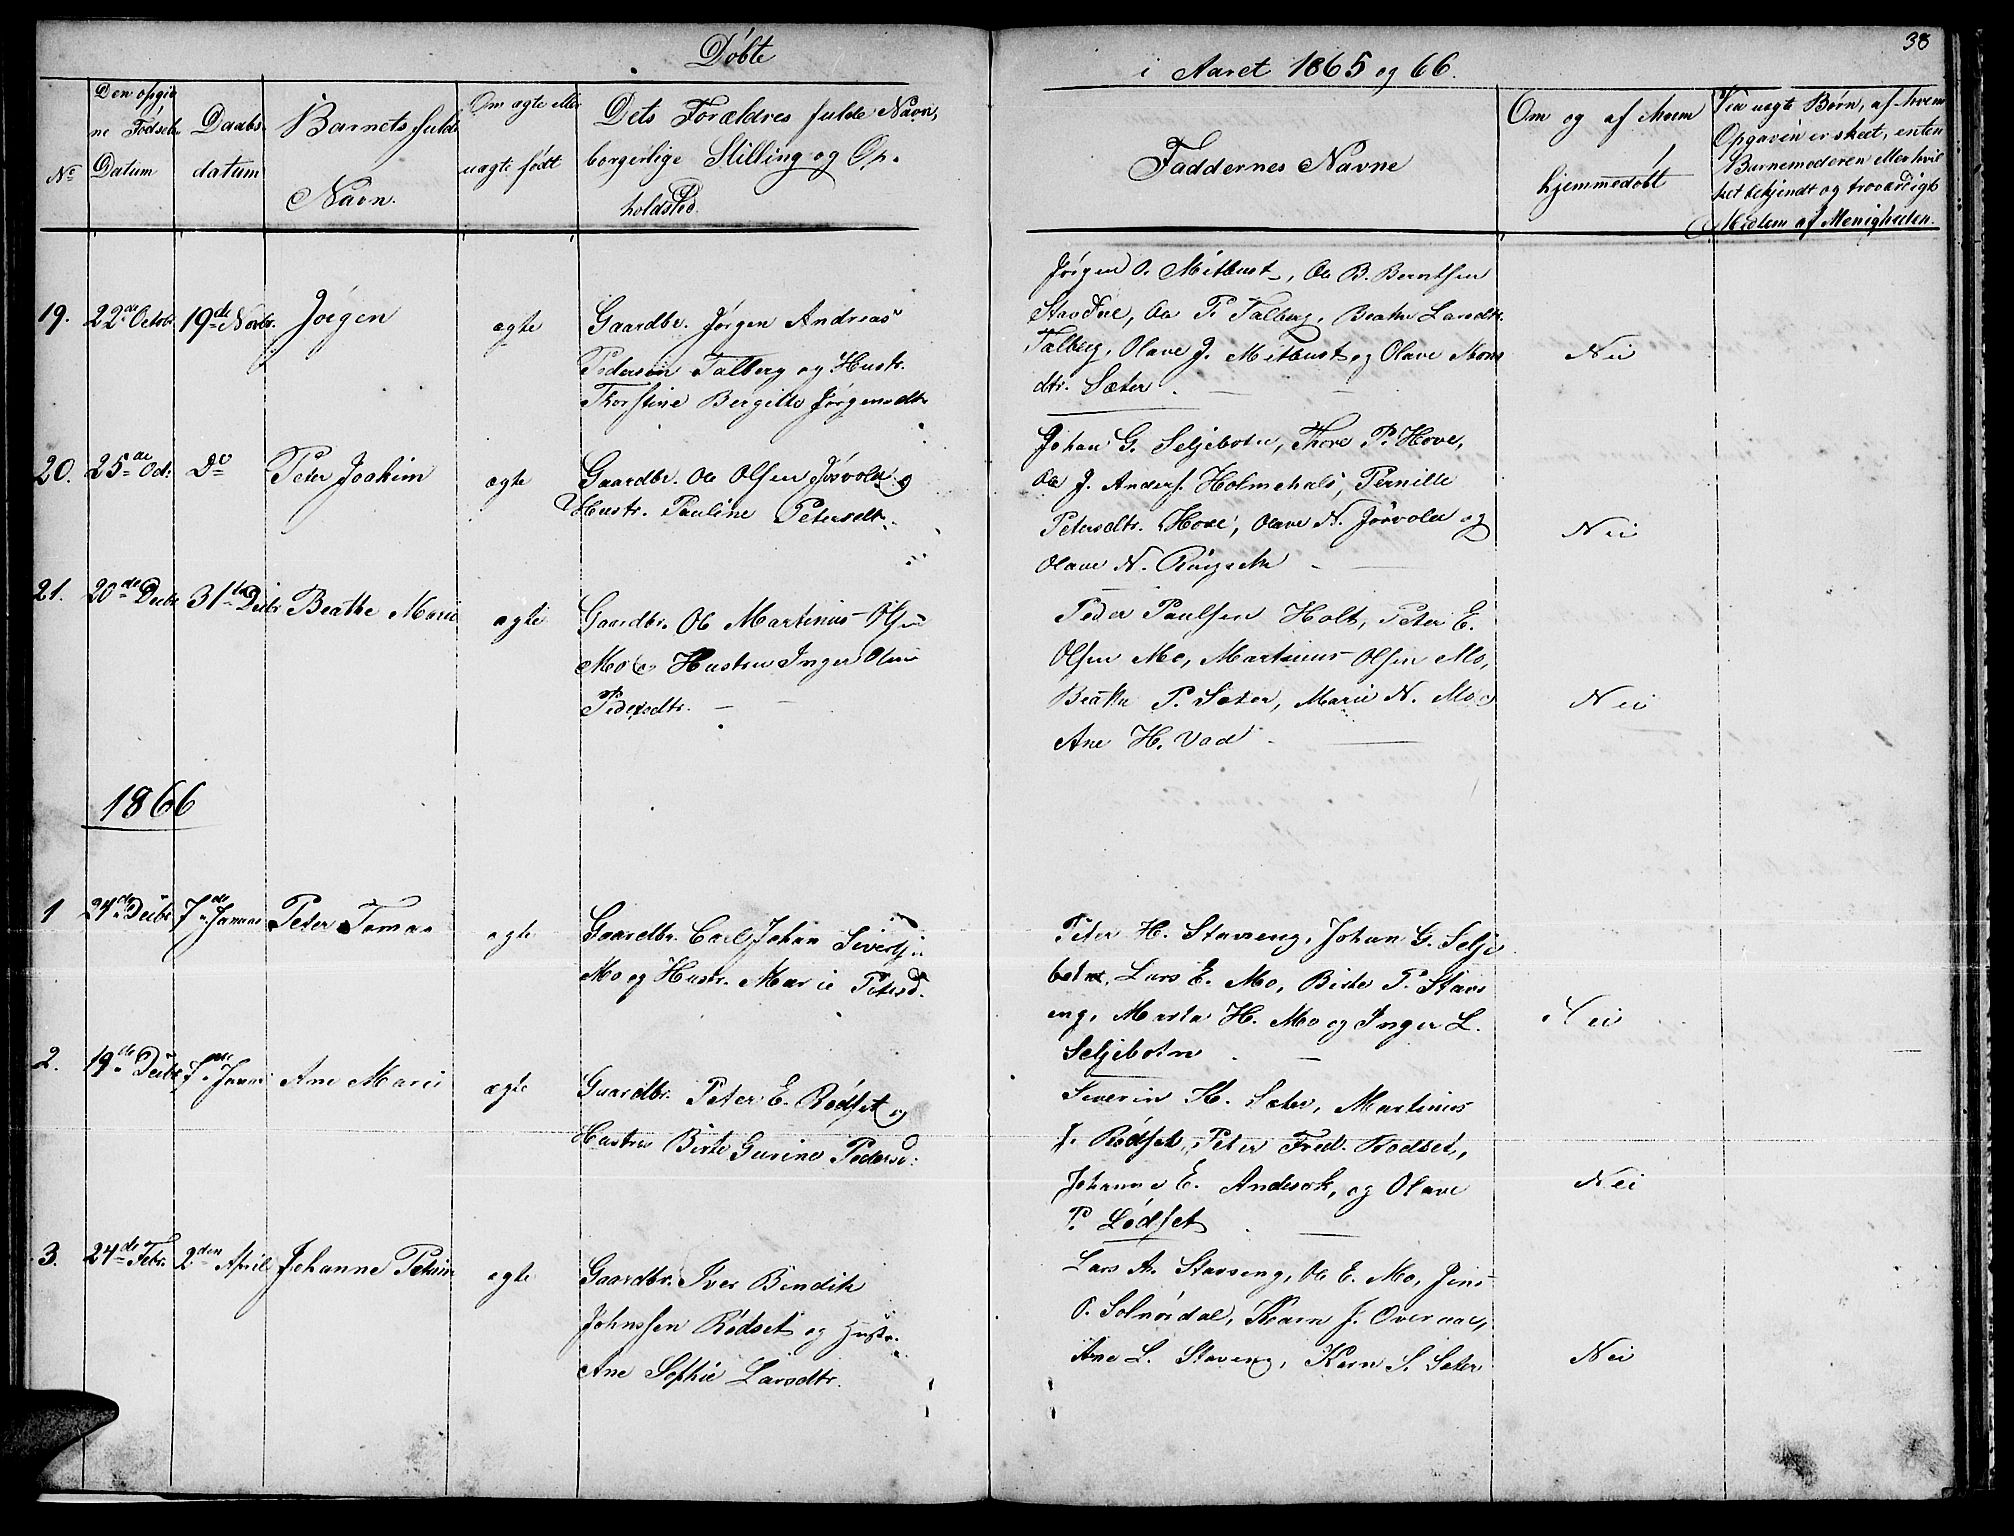 Døbte
i Aaret 1865 og 66.
38
No
Den opgiv
ne Fødsels
Datum
Daabs
datum
Barnets fulde
Navn.
Om ægte eller
uægte født
Dets Forældres fulde Navn,
borgerlige Stilling og Op-
holdsted.
Faddernes Navne
Om og af hvem
hjemmedøbt
Ved uægte Børn, af hvem
Opgaven er skeet, enten
Barnemoderen eller hvil
ket bekjendt og troværdigt
Medlem af Menigheden.
19. 22de Octobr. 19de Novbr. Jørgen ægte
Gaardbr. Jørgen Andreas
Pedersen Talberg og Hustr.
Thorstine Bergitte Jørgensdtr
Jørgen O. Mitbust, Ole B. Berntsen
Ole P. Talberg, Beathe Larsdtr.
Talberg, Olave J. Mitbust og Olave Mons
dtr. Sæter.
Nei
20. 25de Oct. Do Peter Joakim ægte
Gaardbr. Ole Olsen Jørvolde og
Hustr. Pauline Petersdtr.
Johan G. Seljebotn, Thore P. Hove,
Ole J. Anders. Holmehals, Pernille
Petersdtr. Hove, Olave N. Jørvolde og
Olave N. Ringseth
Nei
21. 20de Decbr 31te Decbr Beathe Marie ægte
Gaardbr. Ole Martinus Olsen
Mo og Hustru Inger Oline
Pedersdtr.
Peder Paulsen Holt, Peter E.
Olsen Mo, Martinus Olsen Mo,
Beathe P. Sæter, Marie N. Mo og
Ane H. Vad
Nei
1866
1 24de Decbr 7de Januar Peter Tomas ægte
Gaardbr. Carl Johan Sivertsen
Mo og Hustr. Marie Petersd.
Peter H. Stavseng, Johan G. Selje
botn, Lars E. Mo, Birte P. Stavs
eng, Marta H. Mo og Inger L.
Seljebotn
Nei
2. 19de Decbr 7de Januar Ane Marie ægte
Gaardbr. Peter E. Rødset og
Hustru Birte Gurine Pedersd.
Severin H. Sæter, Martinus
J. Rødset, Peter Fred. Rødset,
Johanne E. Andersk, og Olave
P. Lødset
Nei
3. 24de Febr. 2den April Johanne Petrine ægte
Gaardbr. Iver Bendik
Johnssen Rødset og Hustr.
Ane Sophie Larsdtr.
Lars A. Stavseng, Ole E. Mo, Jens
O. Solnørdal, Karn J. Overaae,
Ane L. Staveng, Karn S. Sæter
Nei